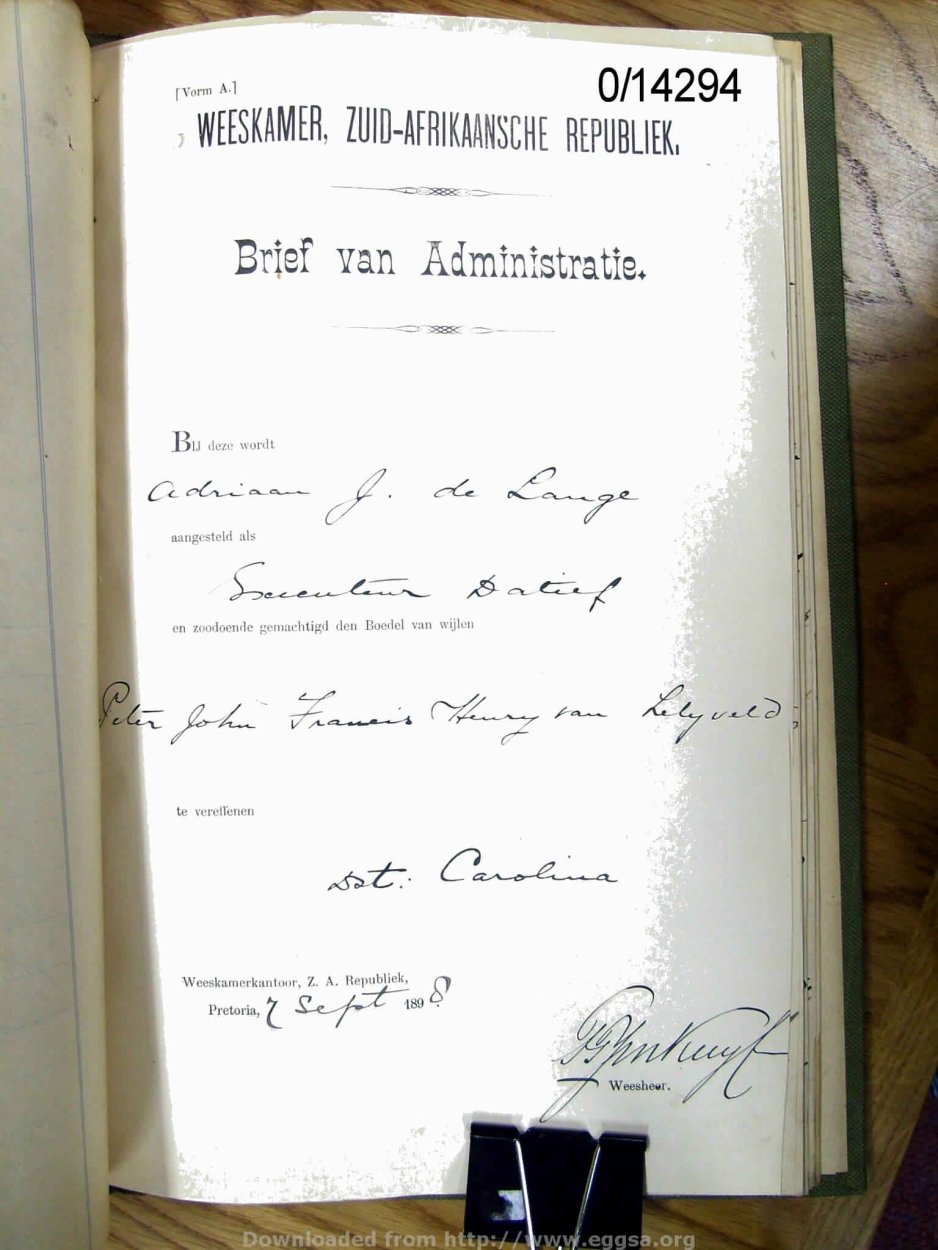 [Vorm A.]
0/14294
WEESKAMER, ZUID-AFRIKAANSCHE REPUBLIEK.
Brief van Administratie.
BIJ deze wordt
Adriaan J. de Lange
aangesteld als
Executeur Datief
en zoodoende gemachtigd den Boedel van wijlen
Peter John Francis Henry van Lelyveld
te vereffenen
Dst: Carolina
Weeskamerkantoor, Z. A. Republiek,
Pretoria, 7 Sept 1898
Weesheer.
Downloaded from http://www.eggsa.org